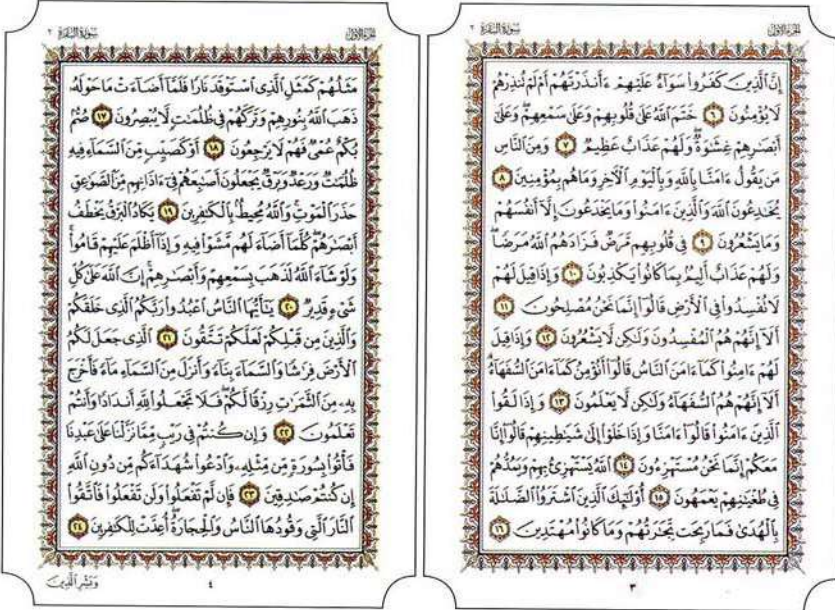 الجزء الأول سورة البقرة ٢
إِنَّ ٱلَّذِينَ كَفَرُوا۟ سَوَآءٌ عَلَيْهِمْ ءَأَنذَرْتَهُمْ أَمْ لَمْ تُنذِرْهُمْ
لَا يُؤْمِنُونَ ٦ خَتَمَ ٱللَّهُ عَلَىٰ قُلُوبِهِمْ وَعَلَىٰ سَمْعِهِمْ ۖ وَعَلَىٰٓ
أَبْصَـٰرِهِمْ غِشَـٰوَةٌ ۖ وَلَهُمْ عَذَابٌ عَظِيمٌ ٧ وَمِنَ ٱلنَّاسِ
مَن يَقُولُ ءَامَنَّا بِٱللَّهِ وَبِٱلْيَوْمِ ٱلْـَٔاخِرِ وَمَا هُم بِمُؤْمِنِينَ ٨
يُخَـٰدِعُونَ ٱللَّهَ وَٱلَّذِينَ ءَامَنُوا۟ وَمَا يَخْدَعُونَ إِلَّآ أَنفُسَهُمْ
وَمَا يَشْعُرُونَ ٩ فِى قُلُوبِهِم مَّرَضٌ فَزَادَهُمُ ٱللَّهُ مَرَضًا ۖ
وَلَهُمْ عَذَابٌ أَلِيمٌۢ بِمَا كَانُوا۟ يَكْذِبُونَ ١٠ وَإِذَا قِيلَ لَهُمْ
لَا تُفْسِدُوا۟ فِى ٱلْأَرْضِ قَالُوٓا۟ إِنَّمَا نَحْنُ مُصْلِحُونَ ١١
أَلَآ إِنَّهُمْ هُمُ ٱلْمُفْسِدُونَ وَلَـٰكِن لَّا يَشْعُرُونَ ١٢ وَإِذَا قِيلَ
لَهُمْ ءَامِنُوا۟ كَمَآ ءَامَنَ ٱلنَّاسُ قَالُوٓا۟ أَنُؤْمِنُ كَمَآ ءَامَنَ ٱلسُّفَهَآءُ ۗ
أَلَآ إِنَّهُمْ هُمُ ٱلسُّفَهَآءُ وَلَـٰكِن لَّا يَعْلَمُونَ ١٣ وَإِذَا لَقُوا۟
ٱلَّذِينَ ءَامَنُوا۟ قَالُوٓا۟ ءَامَنَّا وَإِذَا خَلَوْا۟ إِلَىٰ شَيَـٰطِينِهِمْ قَالُوٓا۟ إِنَّا
مَعَكُمْ إِنَّمَا نَحْنُ مُسْتَهْزِءُونَ ١٤ ٱللَّهُ يَسْتَهْزِئُ بِهِمْ وَيَمُدُّهُمْ
فِى طُغْيَـٰنِهِمْ يَعْمَهُونَ ١٥ أُو۟لَـٰٓئِكَ ٱلَّذِينَ ٱشْتَرَوُا۟ ٱلضَّلَـٰلَةَ
بِٱلْهُدَىٰ فَمَا رَبِحَت تِّجَـٰرَتُهُمْ وَمَا كَانُوا۟ مُهْتَدِينَ ١٦
٣
الجزء الأول سورة البقرة ٢
مَثَلُهُمْ كَمَثَلِ ٱلَّذِى ٱسْتَوْقَدَ نَارًا فَلَمَّآ أَضَآءَتْ مَا حَوْلَهُۥ
ذَهَبَ ٱللَّهُ بِنُورِهِمْ وَتَرَكَهُمْ فِى ظُلُمَـٰتٍ لَّا يُبْصِرُونَ ١٧ صُمٌّۢ
بُكْمٌ عُمْىٌ فَهُمْ لَا يَرْجِعُونَ ١٨ أَوْ كَصَيِّبٍ مِّنَ ٱلسَّمَآءِ فِيهِ
ظُلُمَـٰتٌ وَرَعْدٌ وَبَرْقٌ يَجْعَلُونَ أَصَـٰبِعَهُمْ فِىٓ ءَاذَانِهِم مِّنَ ٱلصَّوَٰعِقِ
حَذَرَ ٱلْمَوْتِ ۚ وَٱللَّهُ مُحِيطٌۢ بِٱلْكَـٰفِرِينَ ١٩ يَكَادُ ٱلْبَرْقُ يَخْطَفُ
أَبْصَـٰرَهُمْ ۖ كُلَّمَآ أَضَآءَ لَهُم مَّشَوْا۟ فِيهِ وَإِذَآ أَظْلَمَ عَلَيْهِمْ قَامُوا۟ ۚ
وَلَوْ شَآءَ ٱللَّهُ لَذَهَبَ بِسَمْعِهِمْ وَأَبْصَـٰرِهِمْ ۚ إِنَّ ٱللَّهَ عَلَىٰ كُلِّ
شَىْءٍ قَدِيرٌ ٢٠ يَـٰٓأَيُّهَا ٱلنَّاسُ ٱعْبُدُوا۟ رَبَّكُمُ ٱلَّذِى خَلَقَكُمْ
وَٱلَّذِينَ مِن قَبْلِكُمْ لَعَلَّكُمْ تَتَّقُونَ ٢١ ٱلَّذِى جَعَلَ لَكُمُ
ٱلْأَرْضَ فِرَٰشًا وَٱلسَّمَآءَ بِنَآءً وَأَنزَلَ مِنَ ٱلسَّمَآءِ مَآءً فَأَخْرَجَ
بِهِۦ مِنَ ٱلثَّمَرَٰتِ رِزْقًا لَّكُمْ ۖ فَلَا تَجْعَلُوا۟ لِلَّهِ أَندَادًا وَأَنتُمْ
تَعْلَمُونَ ٢٢ وَإِن كُنتُمْ فِى رَيْبٍ مِّمَّا نَزَّلْنَا عَلَىٰ عَبْدِنَا
فَأْتُوا۟ بِسُورَةٍ مِّن مِّثْلِهِۦ وَٱدْعُوا۟ شُهَدَآءَكُم مِّن دُونِ ٱللَّهِ
إِن كُنتُمْ صَـٰدِقِينَ ٢٣ فَإِن لَّمْ تَفْعَلُوا۟ وَلَن تَفْعَلُوا۟ فَٱتَّقُوا۟
ٱلنَّارَ ٱلَّتِى وَقُودُهَا ٱلنَّاسُ وَٱلْحِجَارَةُ ۖ أُعِدَّتْ لِلْكَـٰفِرِينَ ٢٤
٤ وَبَشِّرِ ٱلَّذِينَ